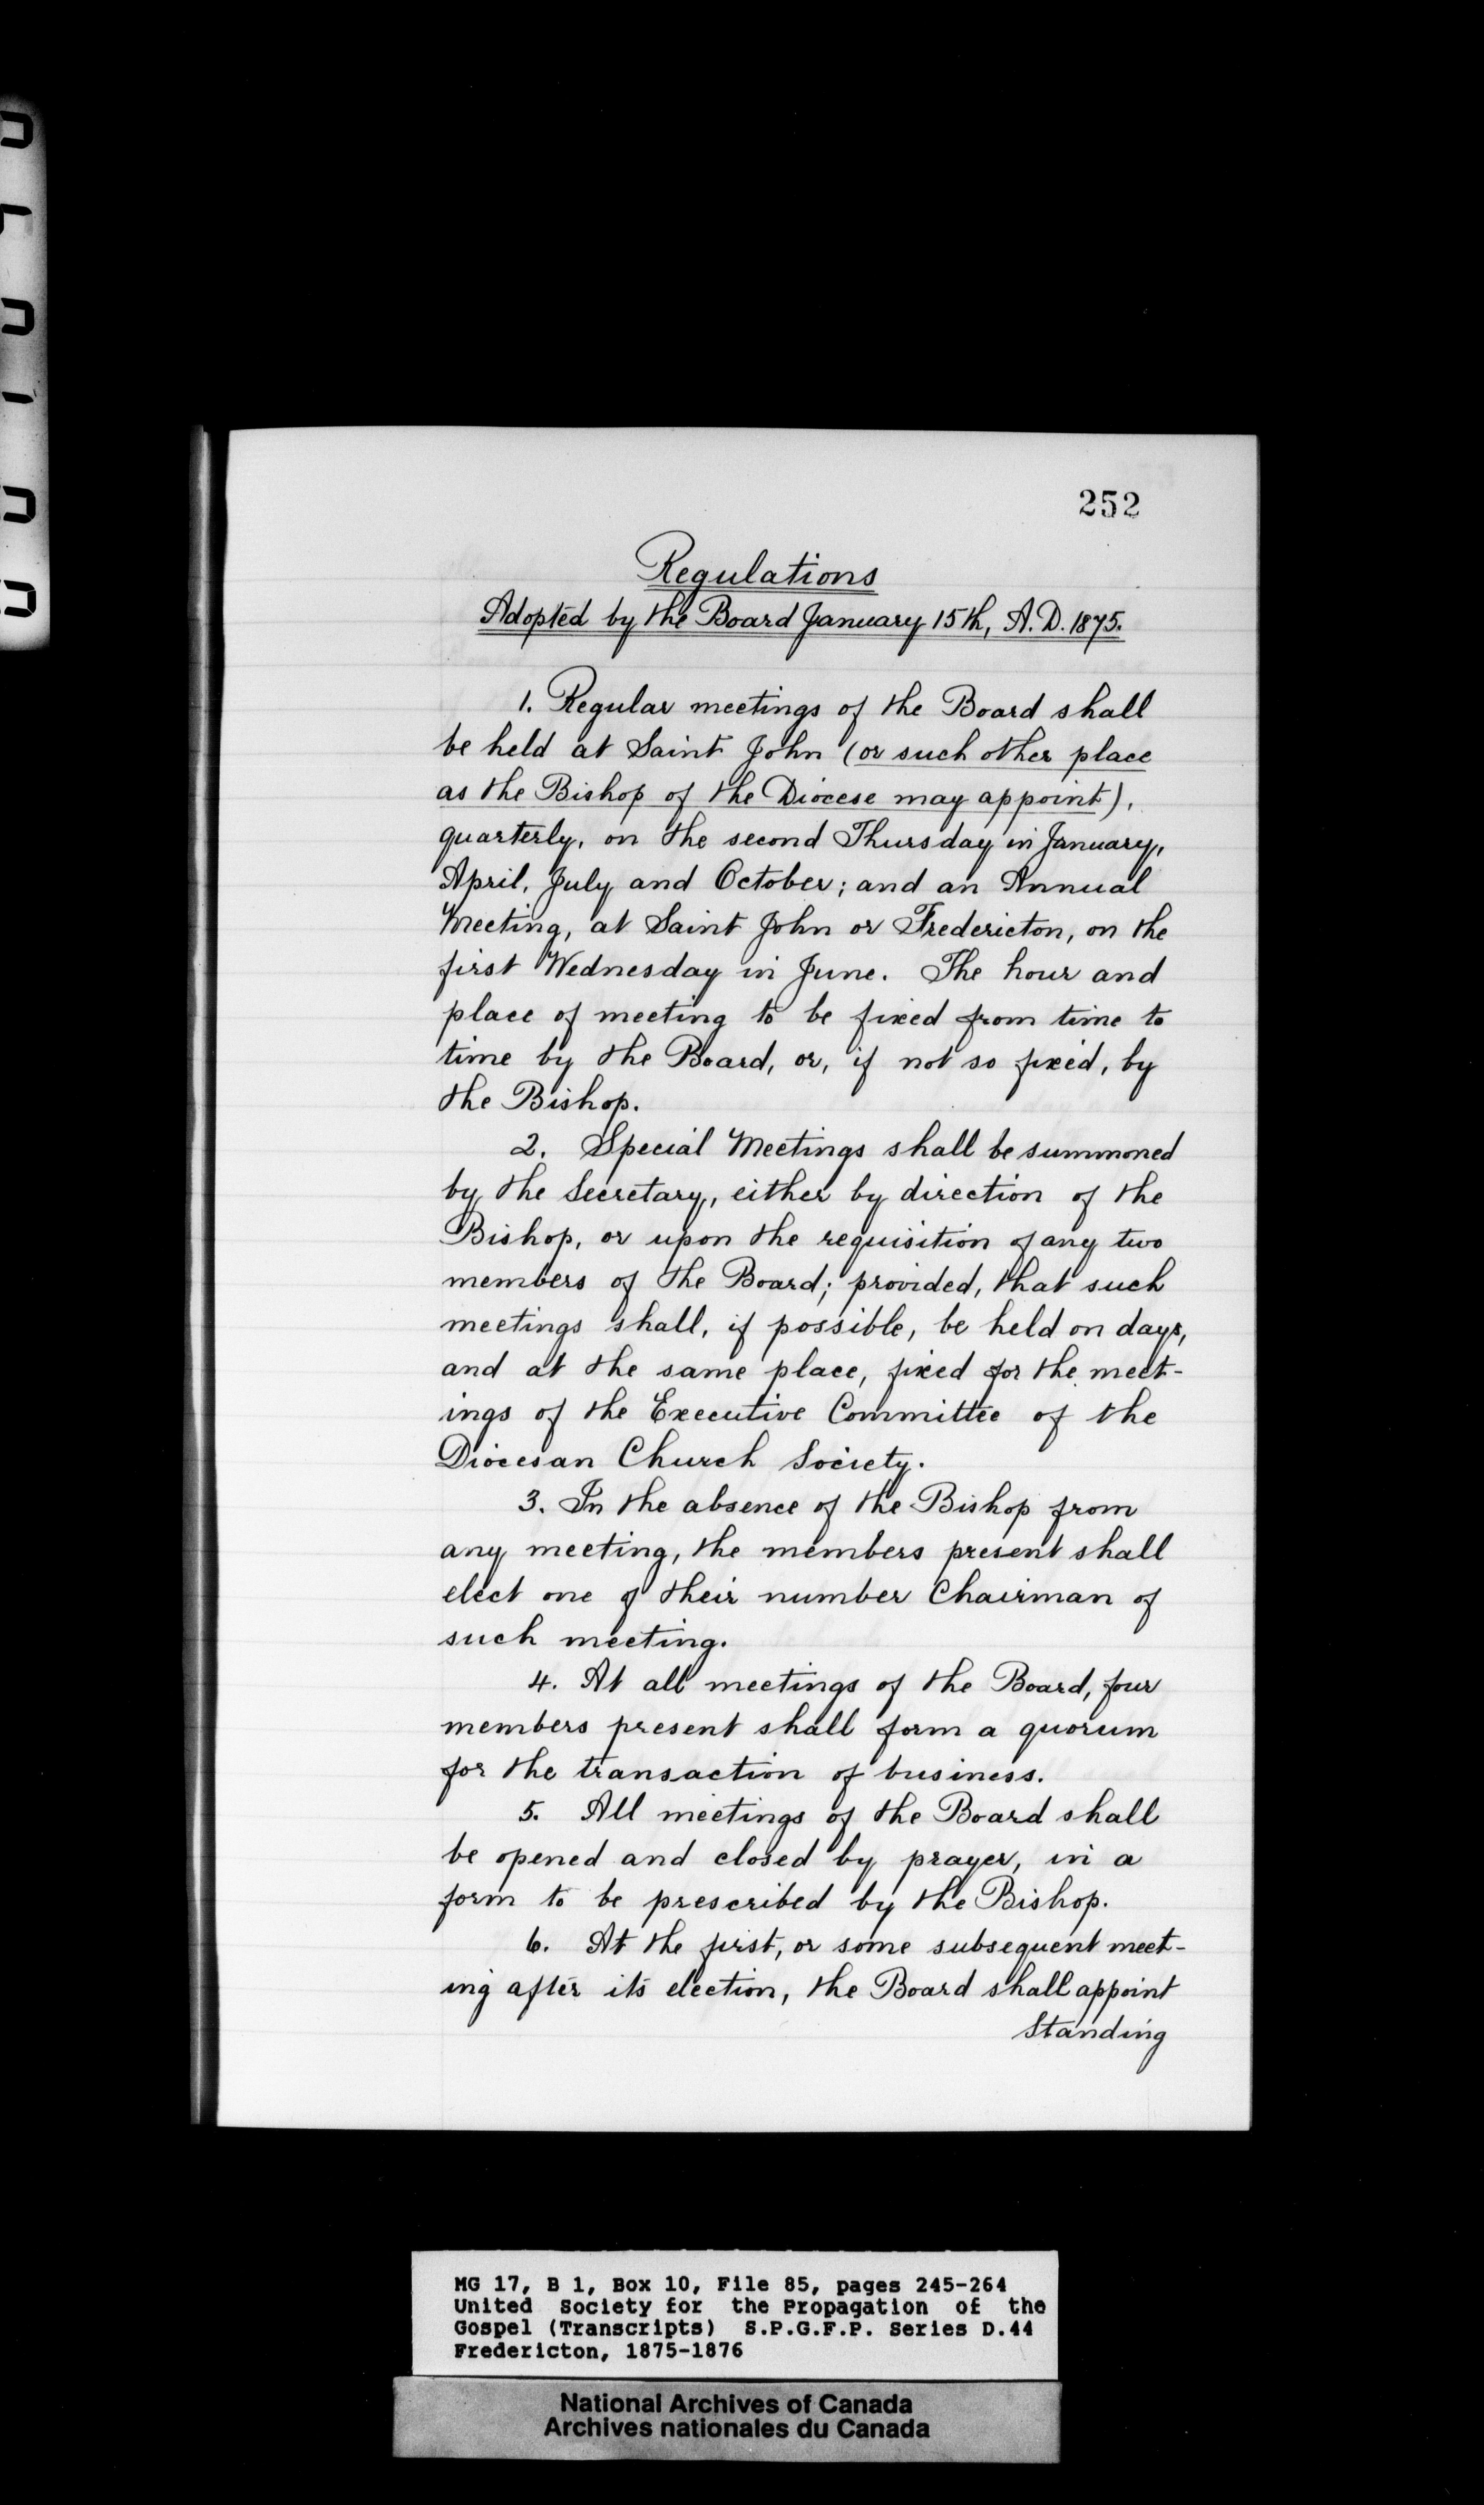 252
Regulations
Adopted by the Board January 15th, A.D. 1875.
1. Regular meetings of the Board shall
be held at Saint John (or such other place
as the Bishop of the Diocese may appoint),
quarterly, on the second Thursday in January,
April, July and October; and an Annual
Meeting, at Saint John or Fredericton, on the
first Wednesday in June. The hour and
place of meeting to be fixed from time to
time by the Board, or, if not so fixed, by
the Bishop.
2. Special Meetings shall be summoned
by the Secretary, either by direction of the
Bishop, or upon the requisition of any two
members of the Board; provided, that such
meetings shall, if possible, be held on days,
and at the same place, fixed for the meet-
ings of the Executive Committee of the
Diocesan Church Society.
3. In the absence of the Bishop from
any meeting, the members present shall
elect one of their number Chairman of
such meeting.
4. At all meetings of the Board, four
members present shall form a quorum
for the transaction of business.
5. All meetings of the Board shall
be opened and closed by prayer, in a
form to be prescribed by the Bishop.
6. At the first, or some subsequent meet-
ing after its election, the Board shall appoint
Standing
MG 17, B 1, Box 10, File 85, pages 245-264
United Society for the Propagation of the
Gospel (Transcripts) S.P.G.F.P. Series D.44
Fredericton, 1875-1876
National Archives of Canada
Archives nationales du Canada